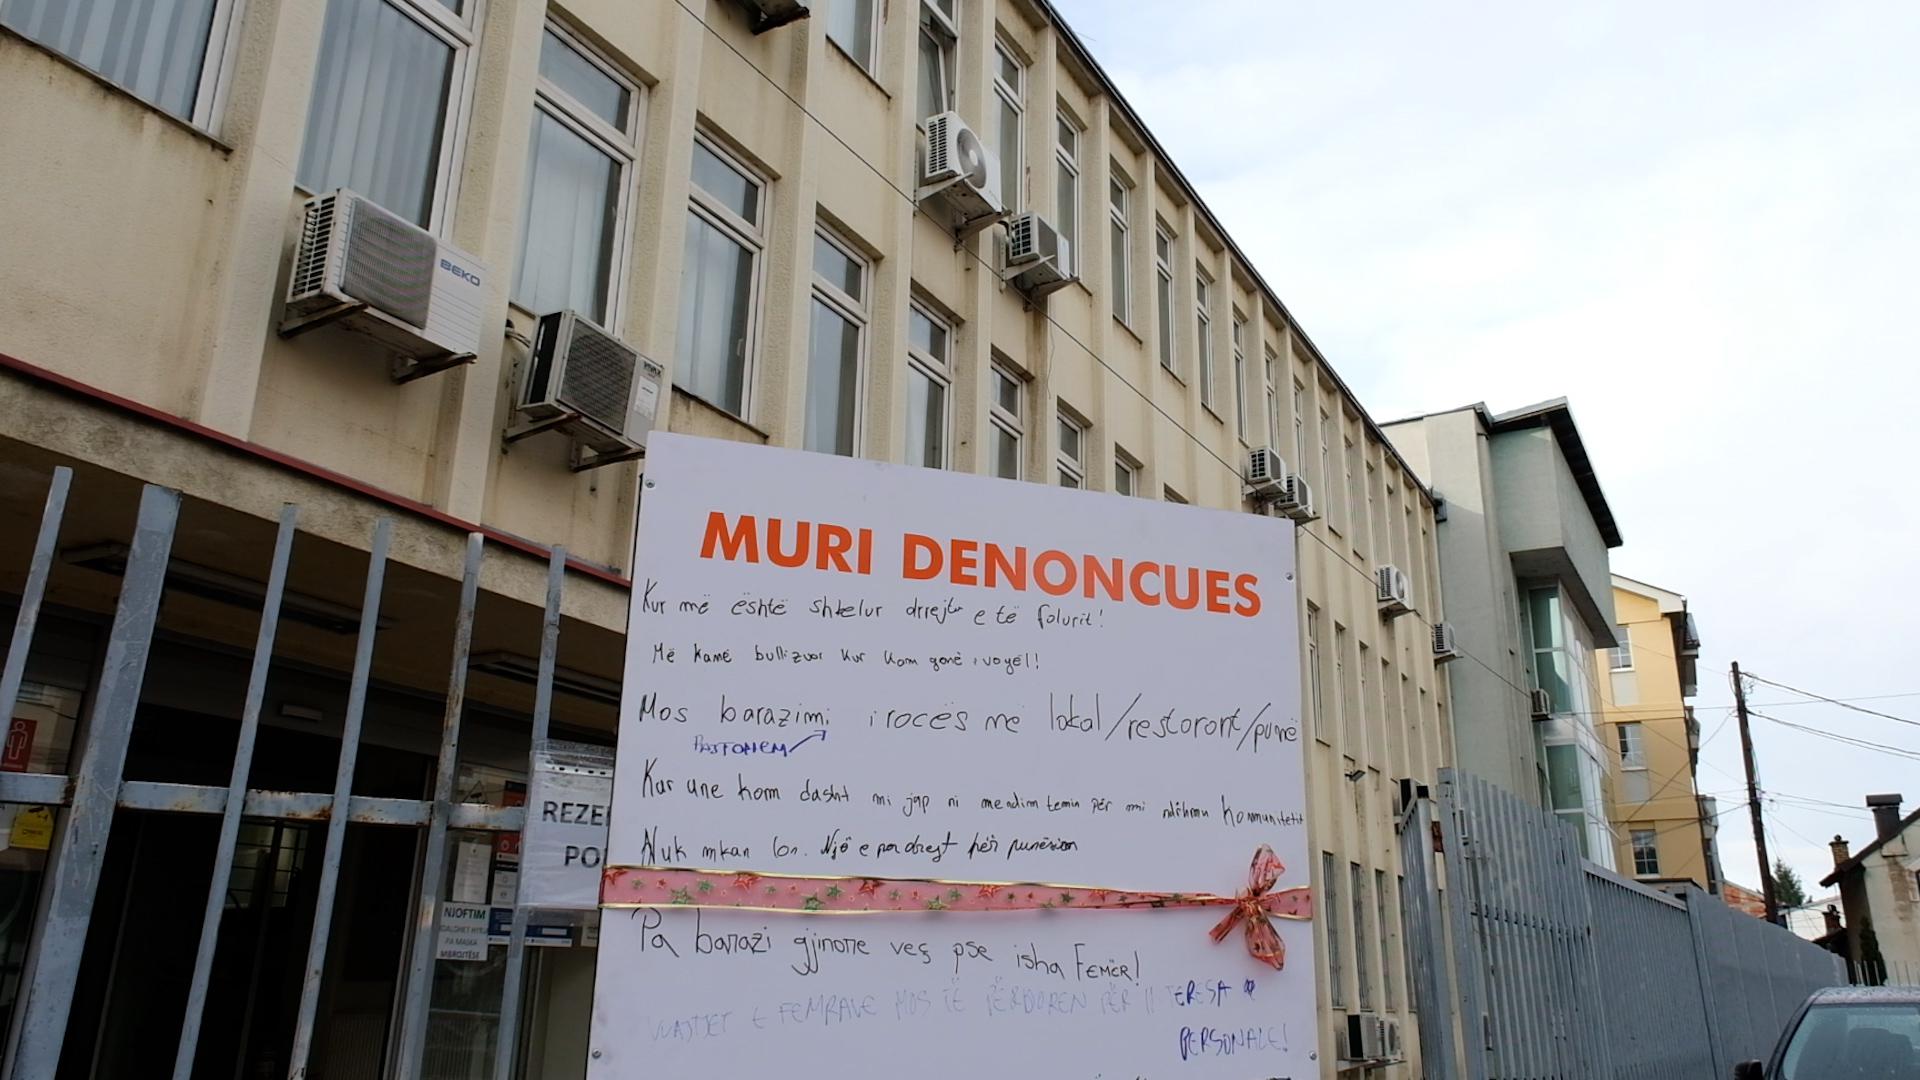 BEKO
VIVAX
MURI DENONCUES
Kur më është shkelur drrejta e të folurit!
Më kanë bullizuar kur kam qenë i vogël!
Mos barazimi i rocës në lokal/restorant/punë
PAJTOHEM
Kur une kom dasht mi jap ni mendim temin për mi ndihmu Komunitetit
Nuk mkan lon. Një e pa drejt për punësim
Pa barazi gjinore veç pse isha FEMËR!
VUAJTJET E FEMRAVE MOS TË PËRDOREN PËR INTERESA
PERSONALE!
REZE
PO
NJOFTIM
NDALOHET HYRJA
PA MASKA
MBROJTËSE